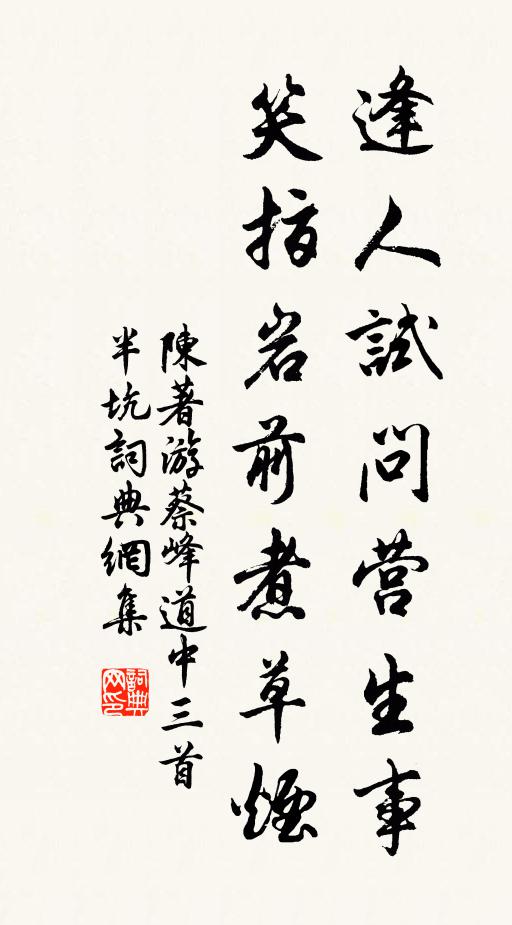 逢人試問营生事
笑指岩前煮草煙
陳著游蔡峰道中三首
半坑詞典網集
詞典网印